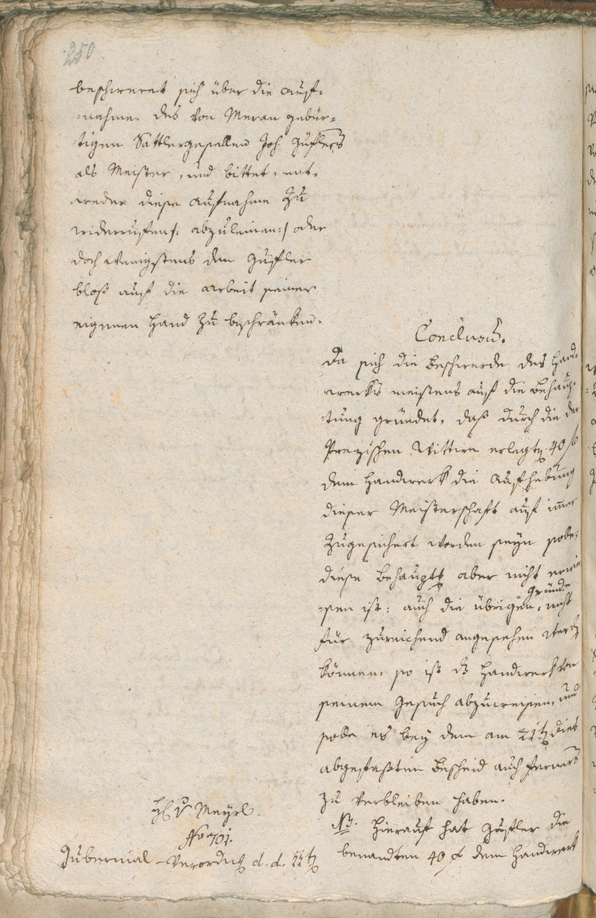 250
beschweret sich über die auf-
nahme des von Meran gebür-
tigen Sattlergesellen Joh. Gufler
als Meister, und bittet, ent-
weder diese Aufnahme zu
widerruffen, abzuleinen, oder
doch wenigstens den Gufler
bloß auf die arbeit seiner
eigenen Hand zu beschränken.
Conclusū.
Da sich die Beschwerde des Hand-
wercks meistens auf die Behaup-
tung gründet, daß durch die der
Wittwe erlegte 40 f
dem Handwerk die Aufhebung
dieser Meisterschaft auf im̄er
zugesichert worden seyn solle,
diese Behauptg aber nicht erwie-
sen ist: auch die übrigen Gründe nicht
für zureichend angesehen werden
können, so ist ds Handwerk von
seinem Gesuch abzuweisen, und
solle es bey dem am 21tn dies
abgefaßten Bescheid auch ferners
zu verbleiben haben.
NB. Hierauf hat Gufler die
benandten 40 f dem Handwerk
H v Mayrl.
No 701.
Gubernial-Verordng d. d. 22tn